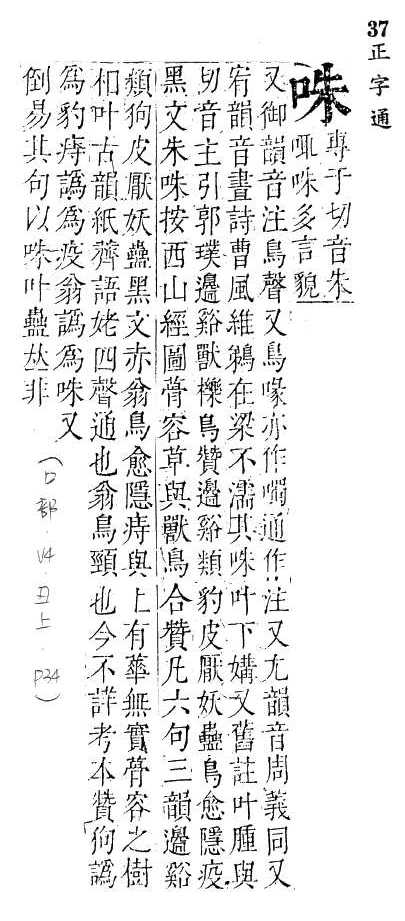 37 正字通
咮
專于切音朱
咮多言貌
又御韻音注鳥聲又鳥喙亦作噣通作注又尤韻音周義同又
宥韻音晝詩曹風維鵜在梁不濡其咮叶下媾又舊註叶腫與
切音主引郭璞邊谿獸櫟鳥贊邊谿類豹皮厭妖蠱鳥愈隱疫
黑文朱咮按西山經圖蓇容草與獸鳥合贊凡六句三韻邊谿
類狗皮厭妖蠱黑文赤翁鳥愈隱痔與上有華無實蓇容之樹
相叶古韻紙薺語姥四聲通也翁鳥頸也今不詳考本贊「狗譌
爲豹痔譌爲疫翁譌爲咮又
倒易其句以咮叶蠱𠀤非
(口部·V4·丑上·P34)